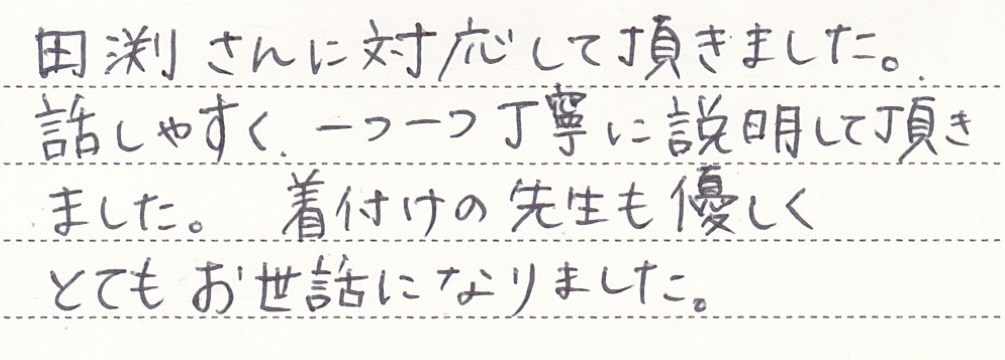 田渕さんに対応して頂きました。
話しやすく、一つ一つ丁寧に説明して頂き
ました。 着付けの先生も優しく
とてもお世話になりました。